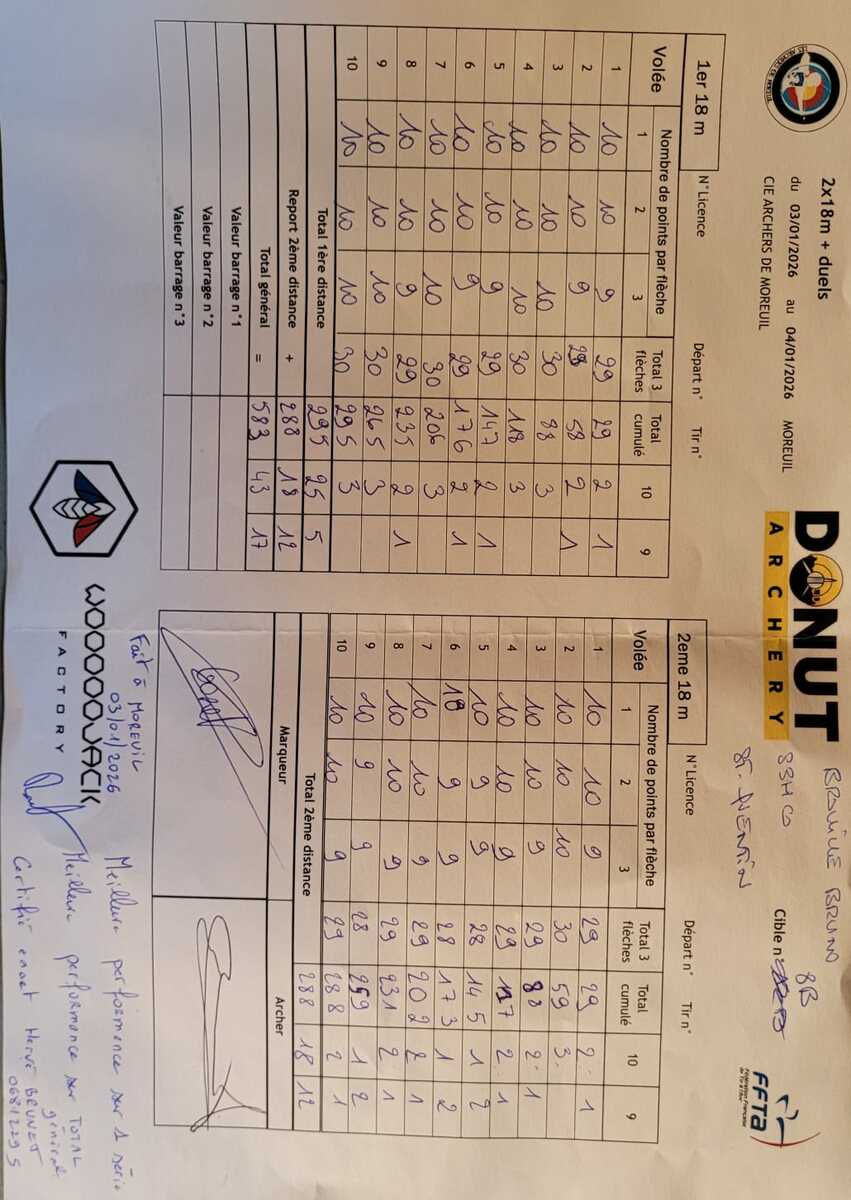 2x18m + duels
du 03/01/2026 au 04/01/2026 MOREUIL
CIE ARCHERS DE MOREUIL
DONUT
ARCHERY
BRUNO 8B
Cible n°
FFTa
Fédération Française
de Tir à l'Arc
1er 18 m
N°Licence Départ n° Tir n°
Volée Nombre de points par flèche Total 3 flèches Total cumulé 10 9
1 2 3
1 10 10 9 29 29 2 1
2 10 10 9 29 58 2 1
3 10 10 10 30 88 3
4 10 10 10 30 118 3
5 10 10 9 29 147 2 1
6 10 10 9 29 176 2 1
7 10 10 10 30 206 3
8 10 10 9 29 235 2 1
9 10 10 10 30 265 3
10 10 10 10 30 295 3
Total 1ère distance 295 25 5
Report 2ème distance + 288 18 12
Total général = 583 43 17
Valeur barrage n°1
Valeur barrage n°2
Valeur barrage n°3
2eme 18 m
N°Licence Départ n° Tir n°
Volée Nombre de points par flèche Total 3 flèches Total cumulé 10 9
1 2 3
1 10 10 9 29 29 2 1
2 10 10 10 30 59 3
3 10 10 9 29 88 2 1
4 10 10 9 29 117 2 1
5 10 9 9 28 145 1 2
6 10 9 9 28 173 1 2
7 10 10 9 29 202 2 1
8 10 10 9 29 231 2 1
9 10 9 9 28 259 1 2
10 10 10 9 29 288 2 1
Total 2ème distance 288 18 12
Marqueur Archer
WOOOOOJACK
FACTORY
Fait à MOREUIL
03/01/2026
Meilleure performance sur 1 série
Meilleure performance sur TOTAL
général
Certifié exact Hervé BRUNET